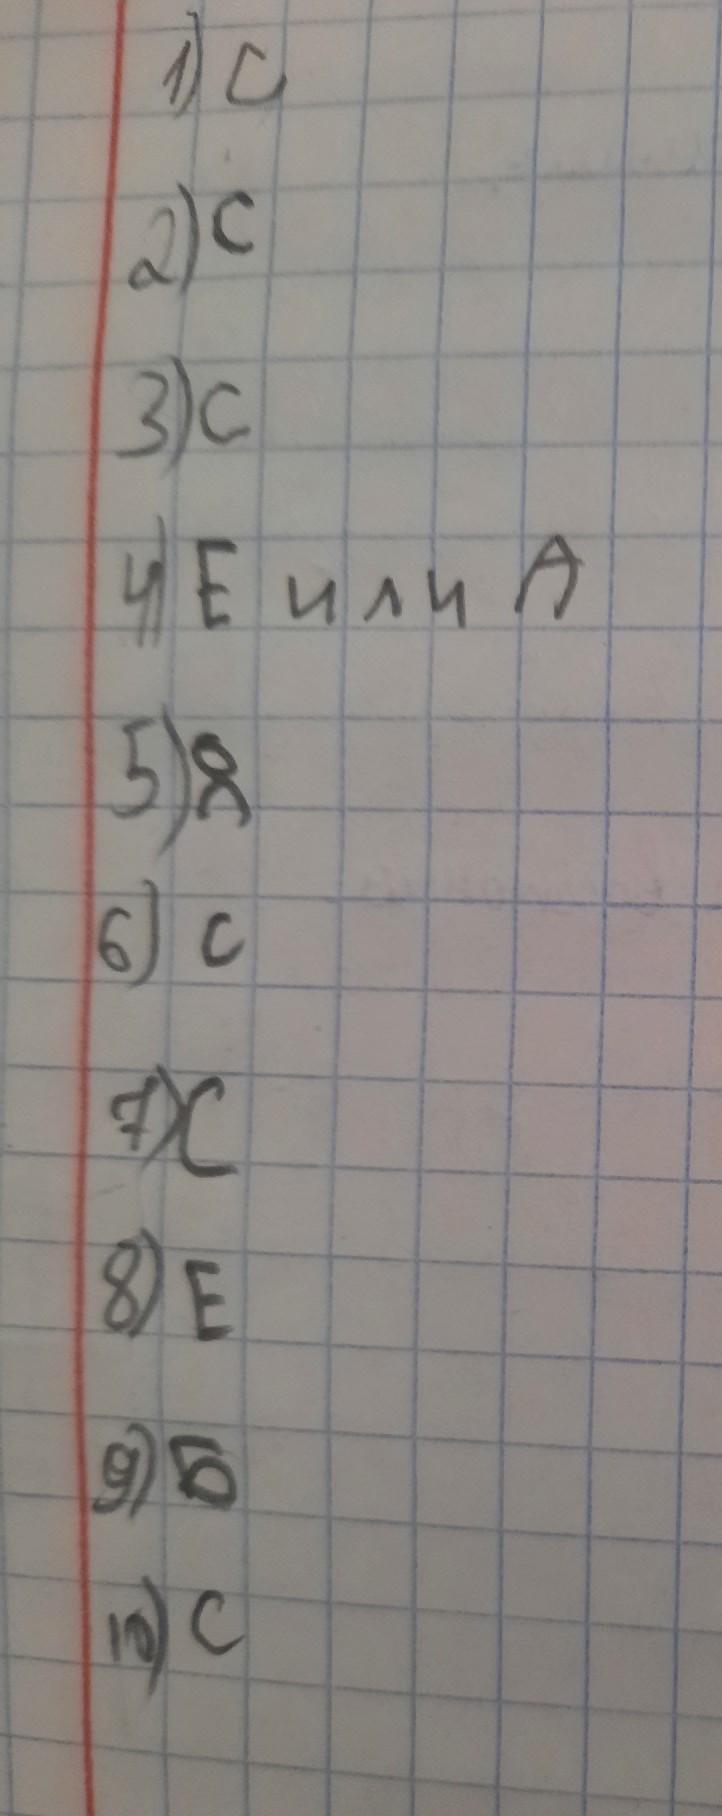 1) С
2) С
3) С
4) Е или А
5) Я
6) С
7) С
8) Е
9) Б
10) С